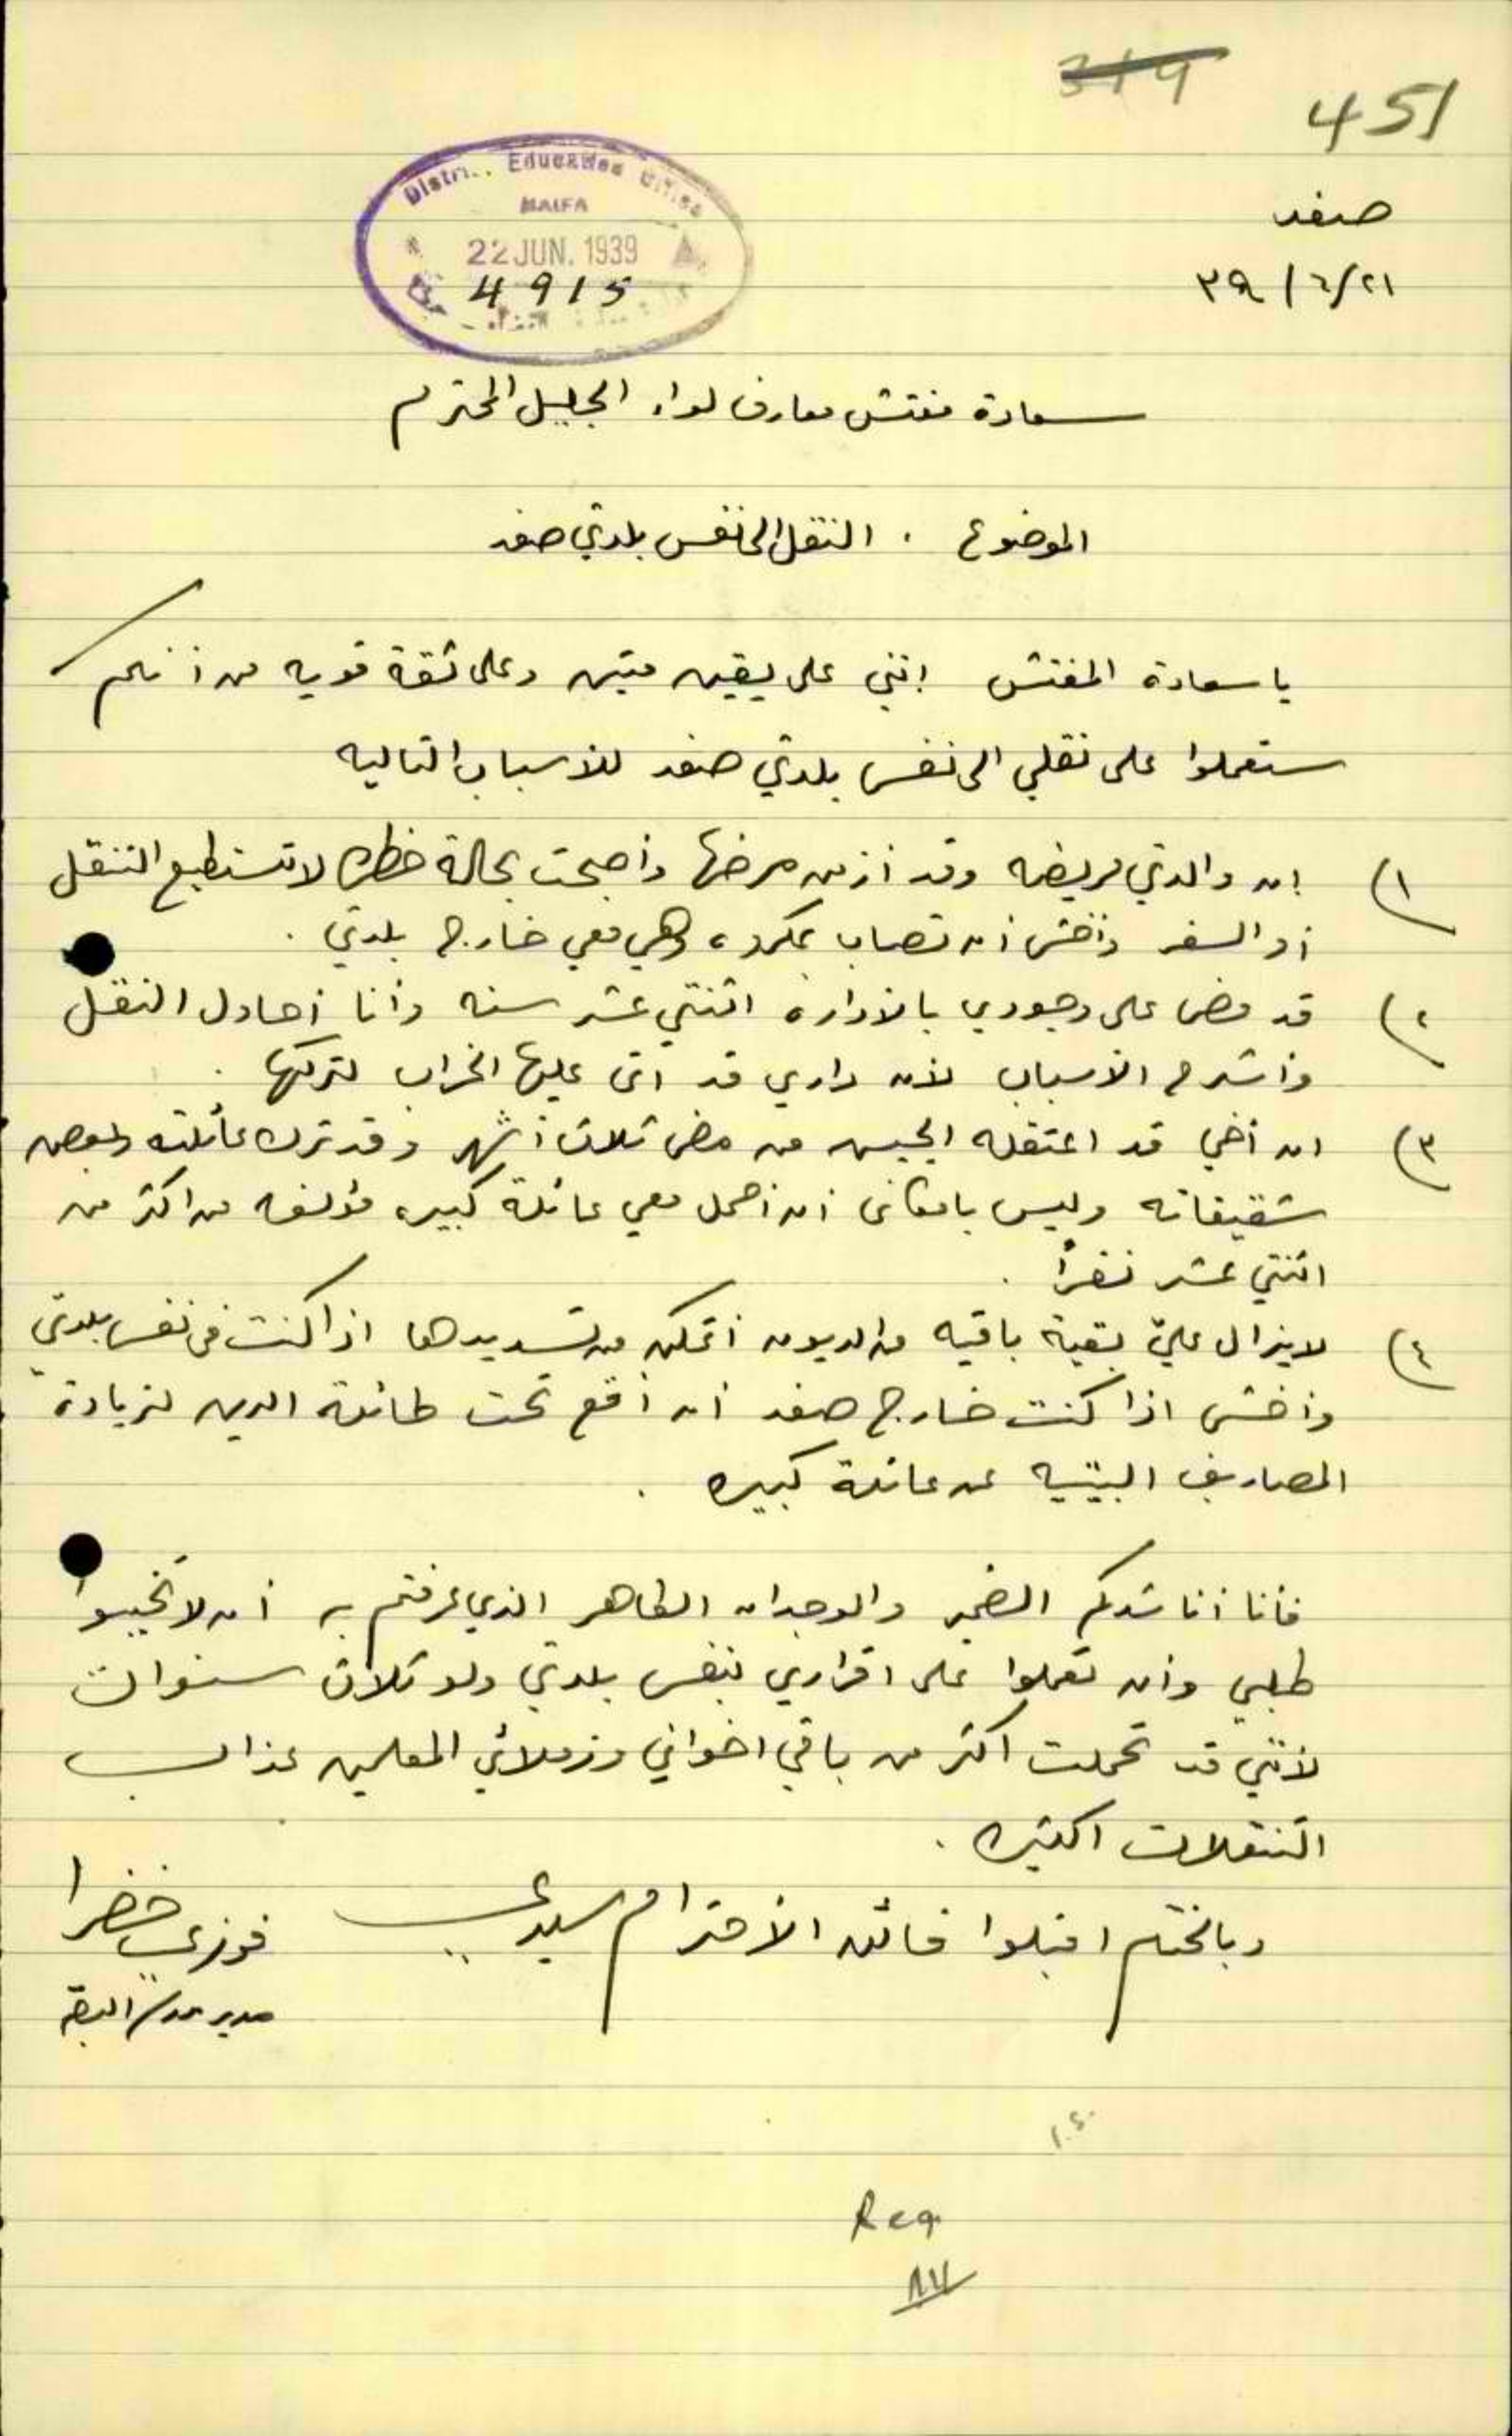 319
451
Distri.. Education Office
HAIFA
22 JUN. 1939
4915
صفد
٢١/٦/٣٩
سعادة مفتش معارف لواء الجليل المحترم
الموضوع . النقل الى نفس بلدتي صفد
يا سعادة المفتش إنني على يقين متين وعلى ثقة قويه من أنكم
ستعملوا على نقلي الى نفس بلدتي صفد للأسباب التاليه
١) إن والدتي مريضه وقد أزمن مرضها وأصبحت بحالة خطره لا تستطيع التنقل
أو السفر وأخشى أن تصاب بمكروه وهي معي خارج بلدتي .
٢) قد مضى على وجودي بالأداره اثنتي عشر سنه وأنا أحاول النقل
وأشرح الأسباب لأن داري قد اتى عليها الخراب لتركها .
٣) ان أخي قد اعتقله الجيش من مضى ثلاث أشهر وقد ترك عائلته وبعض
شقيقاته وليس بامكاني أن أحمل معي عائلة كبيره مؤلفه من اكثر من
اثنتي عشر نفراً .
٤) لا يزال عليّ بقية باقيه من الديون أتمكن من تسديدها اذا كنت في نفس بلدتي
وأخشى اذا كنت خارج صفد أن أقع تحت طائلة الدين لزيادة
المصاريف البيتيه عن عائلة كبيره .
فأنا أناشدكم الضمير والوجدان الطاهر الذي عرفتم به أن لا تخيبوا
طلبي وأن تعملوا على اقراري بنفس بلدتي ولو ثلاث سنوات
لأنني قد تحملت اكثر من باقي اخواني وزملائي المعلمين عذاب
التنقلات الكثيره .
وبالختم اقبلوا فائق الأحترام سيدي
فوزي خضرا
مدير مدرسة
Req